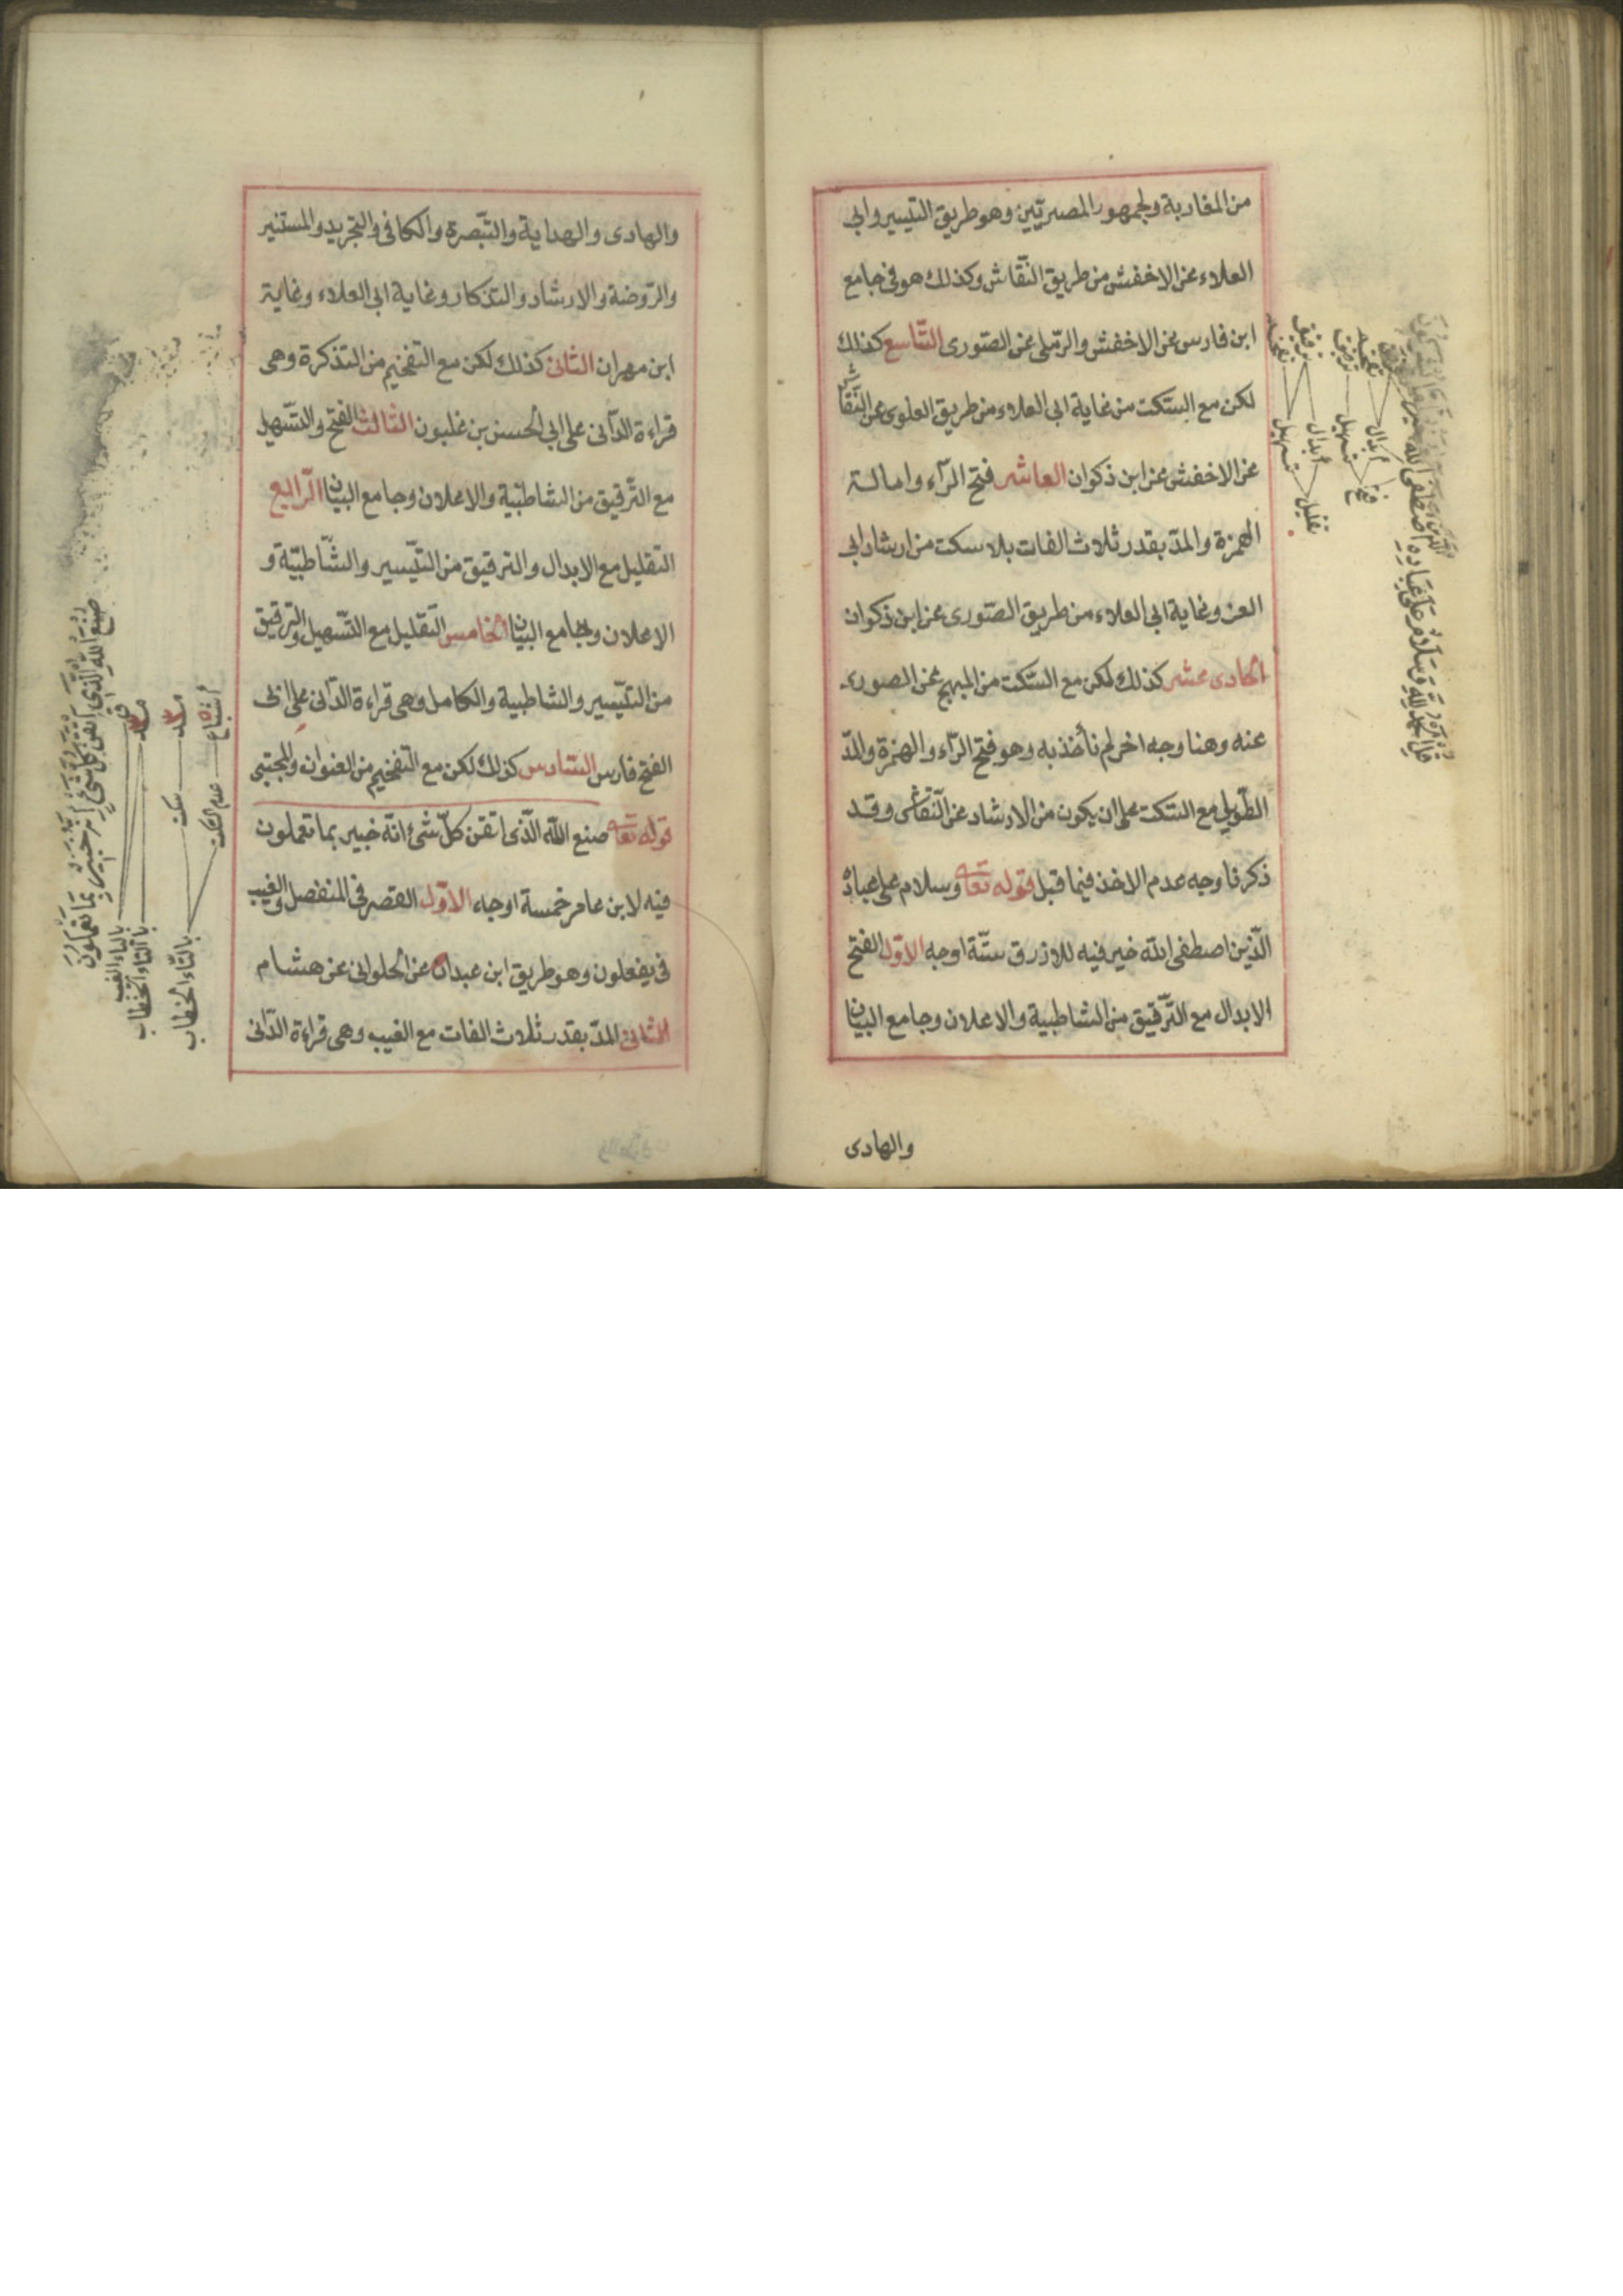 من المغاربة ولجمهور المصريين وهو طريق التيسير وابى
العلاء عن الاخفش من طريق النقاش وكذلك هو فى جامع
ابن فارس عن الاخفش والرملى عن الصورى التاسع كذلك
لكن مع السكت من غاية ابى العلاء من طريق العلوى عن النقاش
عن الاخفش عن ابن ذكوان العاشر فتح الراء وامالة
الهمزة والمد بقدر ثلاث الفات بلا سكت من ارشاد ابى
العز وغاية ابى العلاء من طريق الصورى عن ابن ذكوان
الحادى عشر كذلك لكن مع السكت من المبهج عن الصورى
عنه وهنا وجه اخر لم نأخذ به وهو فتح الراء والهمزة والمد
الطويل مع السكت على ان يكون من الارشاد عن النقاش وقد
ذكرنا وجه عدم الاخذ فيما قبل قوله تعا وسلام على عباده
الذين اصطفى الله خير فيه للازرق ستة اوجه الاول الفتح
الابدال مع الترقيق من الشاطبية والاعلان وجامع البيان
والهادى
قل الحمد لله وسلام على عباده
الذين اصطفى الله خير
ابدال
تسهيل
فتح
ترقيق
تفخيم
ابدال
تسهيل
تقليل
والهادى والهداية والتبصرة والكافى والتجريد والمستنير
والروضة والارشاد والتذكار وغاية ابى العلاء وغاية
ابن مهران الثانى كذلك لكن مع التفخيم من التذكرة وهى
قراءة الدانى على ابى الحسن بن غلبون الثالث الفتح والتسهيل
مع الترقيق من الشاطبية والاعلان وجامع البيان الرابع
التقليل مع الابدال والترقيق من التيسير والشاطبية و
الاعلان وجامع البيان الخامس التقليل مع التسهيل والترقيق
من التيسير والشاطبية والكامل وهى قراءة الدانى على ابى
الفتح فارس السادس كذلك لكن مع التفخيم من العنوان والمجتبى
قوله تعا صنع الله الذى اتقن كل شئ انه خبير بما تعملون
فيه لابن عامر خمسة اوجه الاول القصر فى المنفصل والغيب
فى يفعلون وهو طريق ابن عبدان عن الحلوانى عن هشام
الثانى المد بقدر ثلاث الفات مع الغيب وهى قراءة الدانى
صنع الله الذى اتقن كل شئ
انه خبير بما تفعلون
بالياء الغيب
بالتاء الخطاب
سكت
اشباع
عدم السكت
بالتاء الخطاب